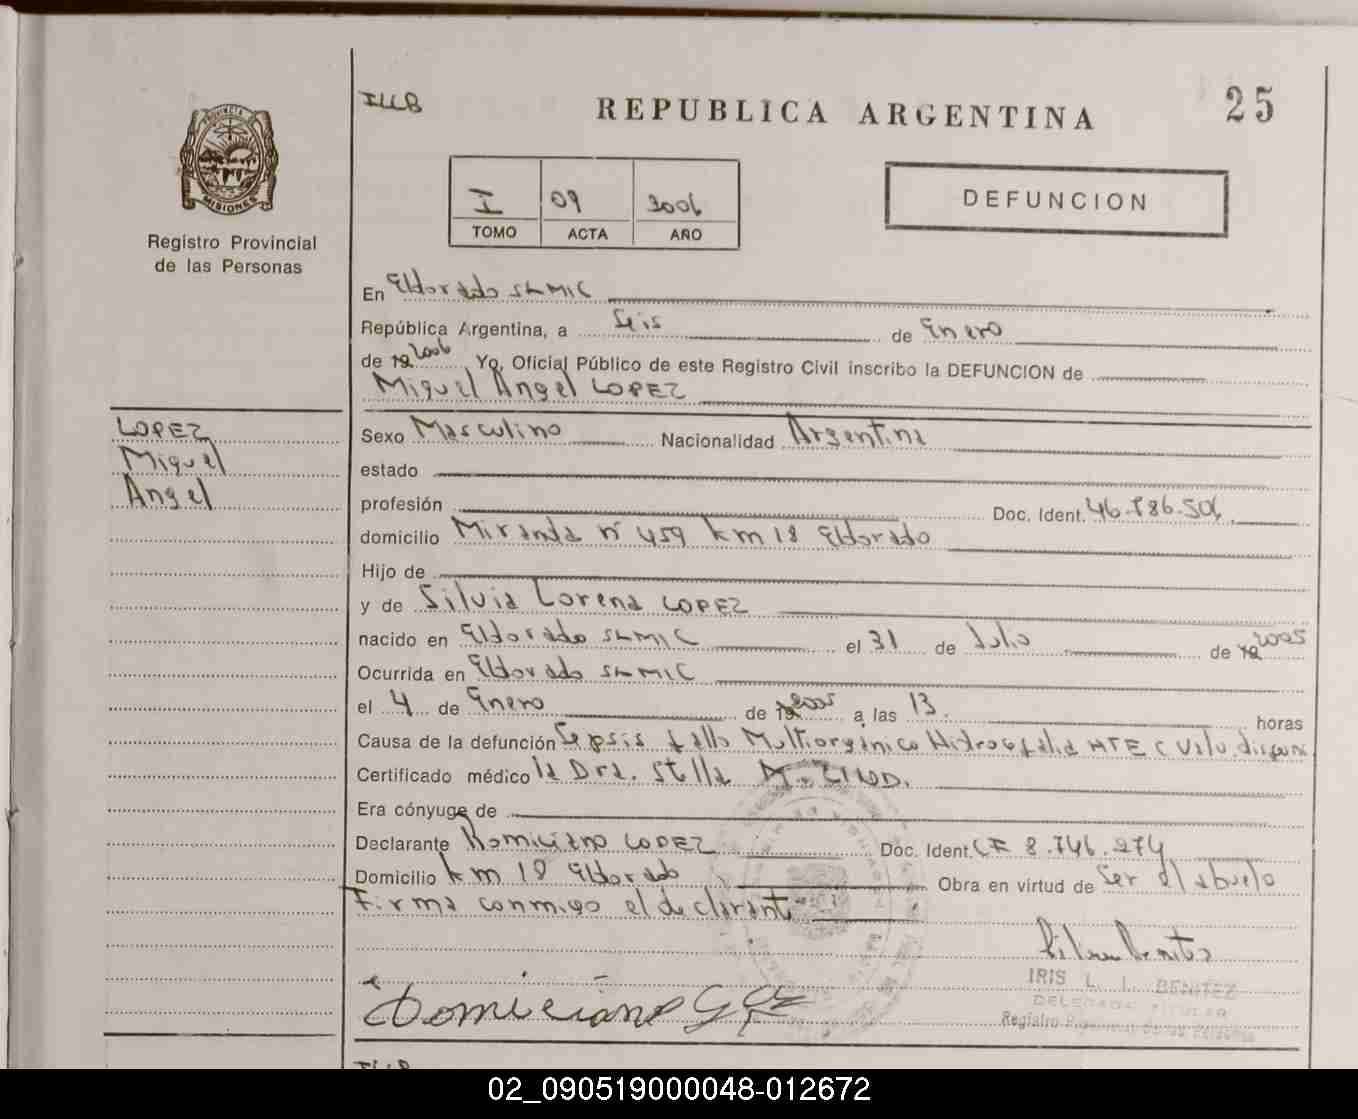 ILLB
REPUBLICA ARGENTINA
25
PROVINCIA DE
MISIONES
Registro Provincial
de las Personas
I 09 2006
TOMO ACTA AÑO
DEFUNCION
En Eldorado SAMIC
República Argentina, a Seis de Enero
de 19 2006 Yo, Oficial Público de este Registro Civil inscribo la DEFUNCION de
Miguel Angel LOPEZ
LOPEZ
Miguel
Angel
Sexo Masculino Nacionalidad Argentina
estado
profesión Doc. Ident. 46.786.506
domicilio Miranda nº 459 km 18 Eldorado
Hijo de
y de Silvia Lorena LOPEZ
nacido en Eldorado SAMIC el 31 de Julio de 19 2005
Ocurrida en Eldorado SAMIC
el 4 de Enero de 19 2005 a las 13 horas
Causa de la defunción Sepsis fallo Multiorgánico Hidrocefalia
Certificado médico la Dra. Stella M.
Era cónyuge de
Declarante Romiciano LOPEZ Doc. Ident. CF 8.746.274
Domicilio km 18 Eldorado Obra en virtud de Ser el abuelo
Firma conmigo el declarante
IRIS L. I. BENITEZ
DELEGADA TITULAR
Registro Provincial de las Personas
02_090519000048-012672